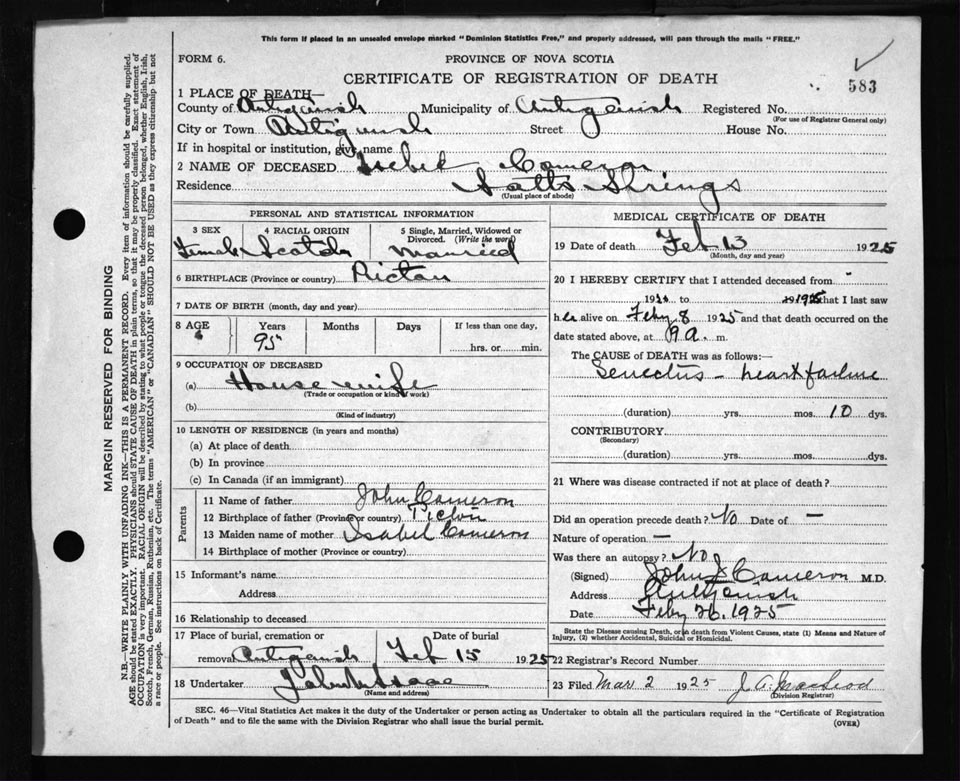 This form if placed in an unsealed envelope marked "Dominion Statistics Free," and properly addressed, will pass through the mails "FREE."
FORM 6.
PROVINCE OF NOVA SCOTIA
CERTIFICATE OF REGISTRATION OF DEATH
583
1 PLACE OF DEATH—
County of Antigonish Municipality of Antigonish Registered No.
(For use of Registrar General only)
City or Town Antigonish Street House No.
If in hospital or institution, give name
2 NAME OF DECEASED Isabel Cameron
Residence Salts Springs
(Usual place of abode)
PERSONAL AND STATISTICAL INFORMATION
3 SEX 4 RACIAL ORIGIN 5 Single, Married, Widowed or Divorced. (Write the word)
Female Scotch Married
6 BIRTHPLACE (Province or country) Pictou
7 DATE OF BIRTH (month, day and year)
8 AGE Years Months Days If less than one day,
95 hrs. or min.
9 OCCUPATION OF DECEASED
(a) House wife
(Trade or occupation or kind of work)
(b)
(Kind of industry)
10 LENGTH OF RESIDENCE (in years and months)
(a) At place of death
(b) In province
(c) In Canada (if an immigrant)
Parents
11 Name of father John Cameron
12 Birthplace of father (Province or country) Pictou
13 Maiden name of mother Isabel Cameron
14 Birthplace of mother (Province or country)
15 Informant's name
Address
16 Relationship to deceased
17 Place of burial, cremation or Date of burial
removal Antigonish Feb 15 1925
18 Undertaker
(Name and address)
MEDICAL CERTIFICATE OF DEATH
19 Date of death Feb 13 1925
(Month, day and year)
20 I HEREBY CERTIFY that I attended deceased from
to 1925 that I last saw
her alive on Feby 8 1925 and that death occurred on the
date stated above, at 9 a. m.
The CAUSE OF DEATH was as follows:—
Senectus – heart failure
(duration) yrs. mos. 10 dys.
CONTRIBUTORY
(Secondary)
(duration) yrs. mos. dys.
21 Where was disease contracted if not at place of death?
Did an operation precede death? No Date of —
Nature of operation —
Was there an autopsy? No
(Signed) John J Cameron M.D.
Address Antigonish
Date Feby 26, 1925
State the Disease causing Death, or in death from Violent Causes, state (1) Means and Nature of
Injury, (2) whether Accidental, Suicidal or Homicidal.
22 Registrar's Record Number
23 Filed Mar 2 1925 J. A. MacLeod
(Division Registrar)
SEC. 46—Vital Statistics Act makes it the duty of the Undertaker or person acting as Undertaker to obtain all the particulars required in the "Certificate of Registration
of Death" and to file the same with the Division Registrar who shall issue the burial permit.
(OVER)
MARGIN RESERVED FOR BINDING
N.B—WRITE PLAINLY WITH UNFADING INK—THIS IS A PERMANENT RECORD. Every item of information should be carefully supplied.
AGE should be stated EXACTLY. PHYSICIANS should STATE CAUSE OF DEATH in plain terms, so that it may be properly classified. Exact statement of
OCCUPATION is very important. RACIAL ORIGIN will be described by stating to what people or tongue the deceased person belonged, whether English, Irish,
Scotch, French, German, Russian, Ruthenian, etc. The terms "AMERICAN" or "CANADIAN" SHOULD NOT BE USED as they express citizenship but not
a race or people. See instructions on back of Certificate.